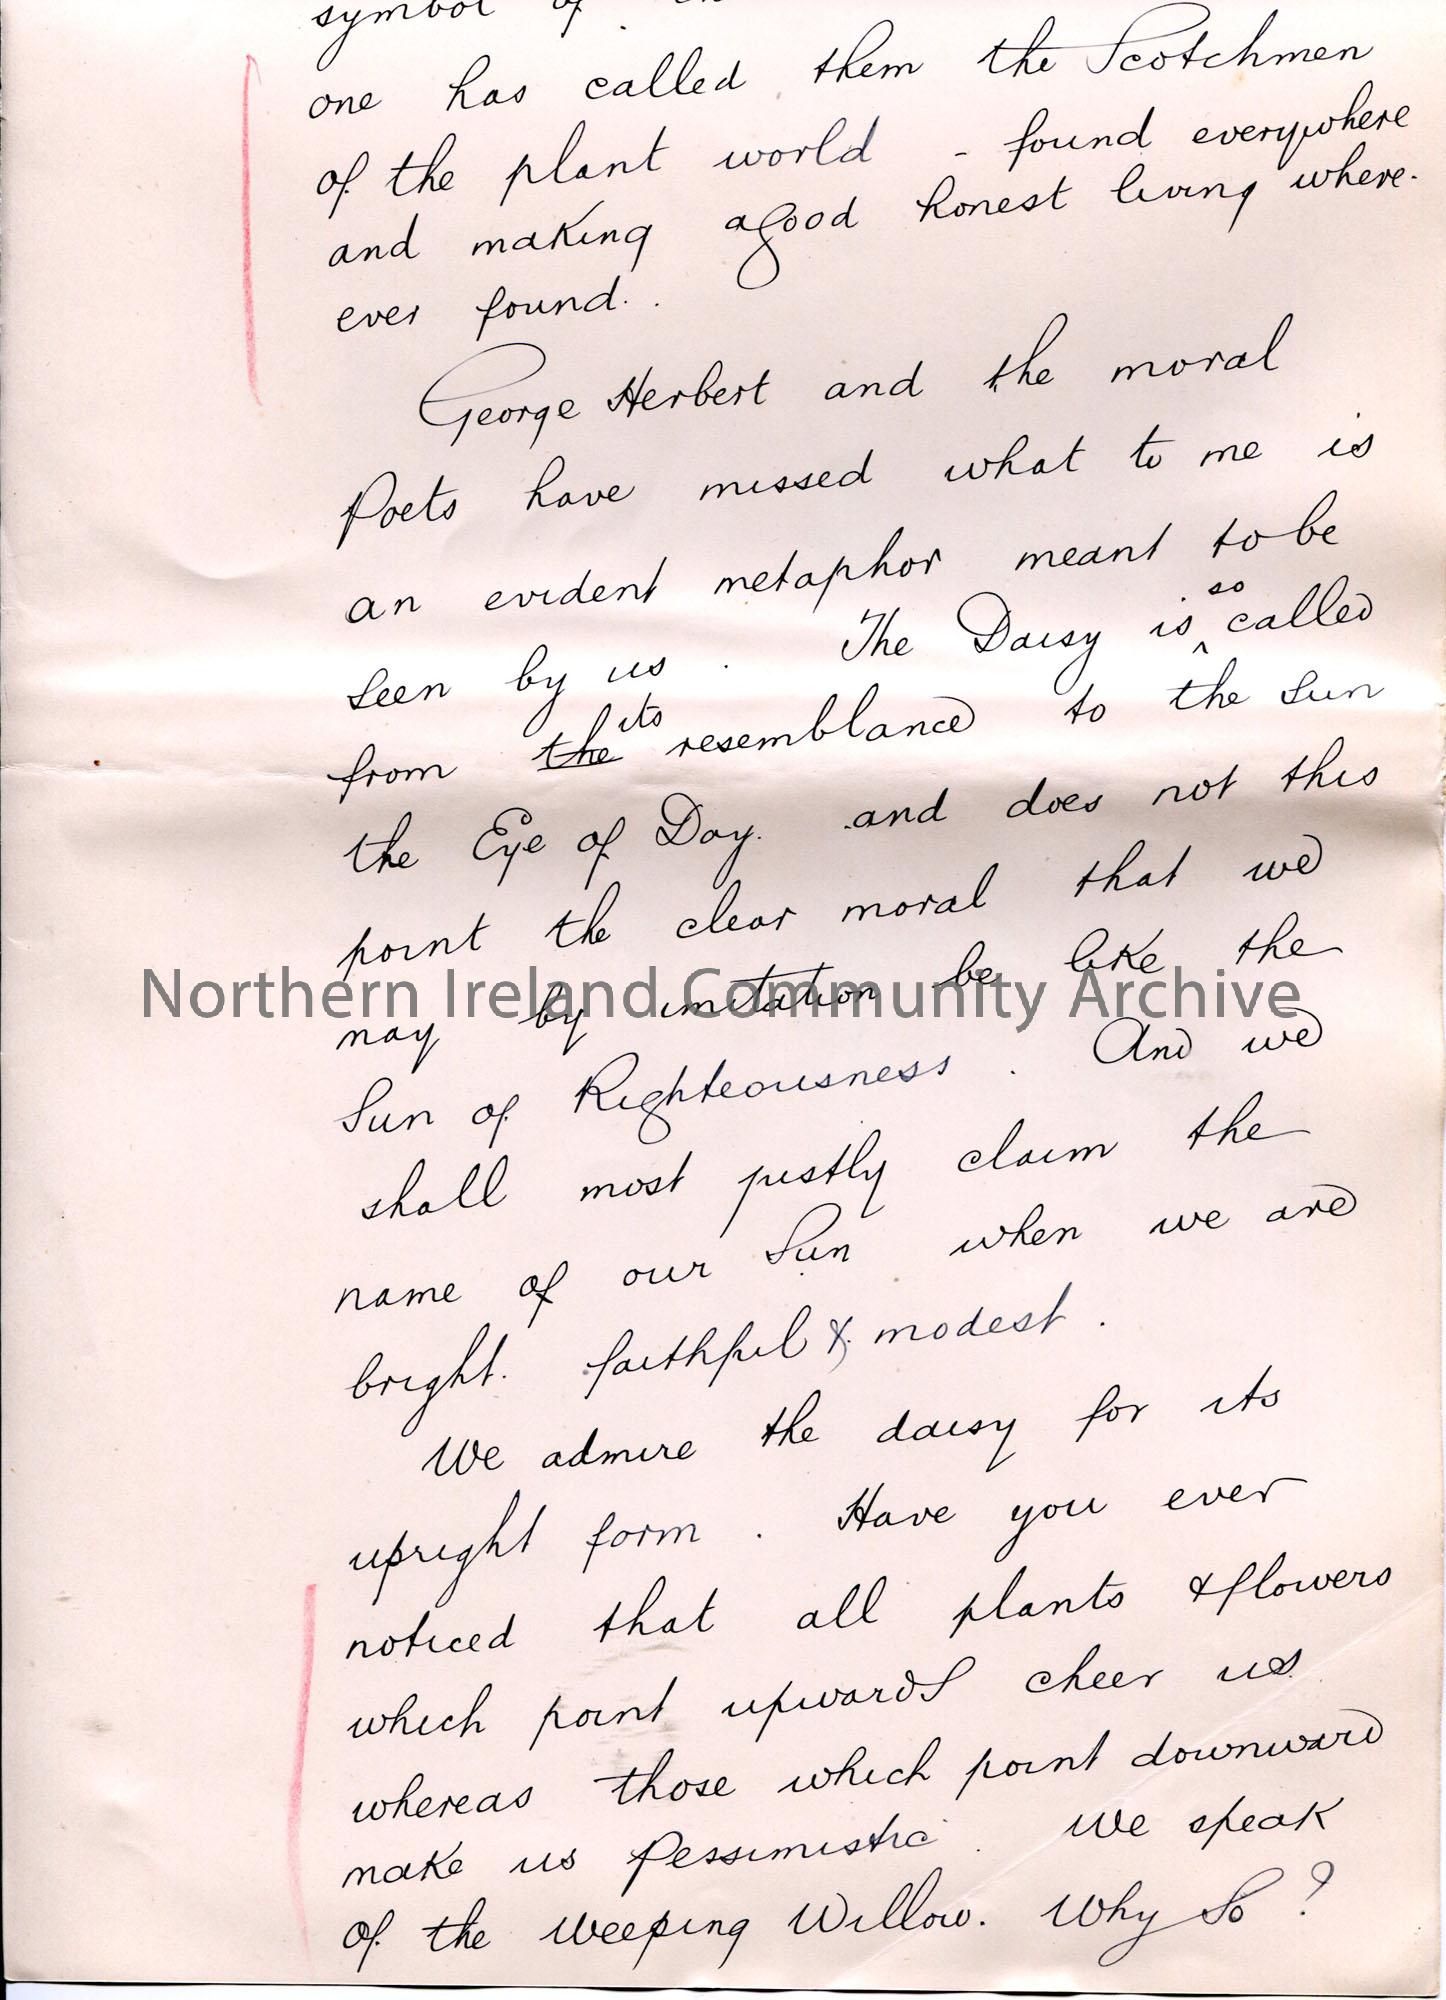 symbol of
one has called them the Scotchmen
of the plant world - found everywhere
and making a good honest living where-
ever found.
George Herbert and the moral
Poets have missed what to me is
an evident metaphor meant to be
seen by us. The Daisy is so called
from the its resemblance to the Sun
the Eye of Day. and does not this
point the clear moral that we
may by imitation be like the
Northern Ireland Community Archive
Sun of Righteousness. And we
shall most justly claim the
name of our Sun when we are
bright. faithful & modest.
We admire the daisy for its
upright form. Have you ever
noticed that all plants & flowers
which point upwards cheer us
whereas those which point downward
make us Pessimistic. We speak
of the Weeping Willow. Why So?